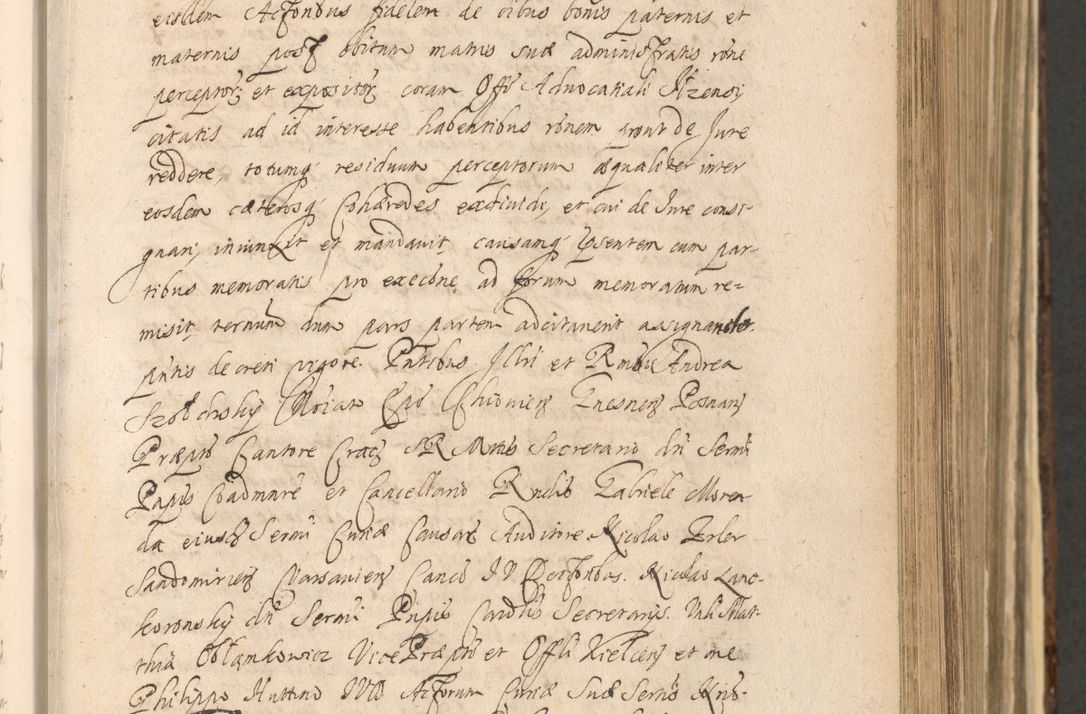 eisdem Actonbus fidelem de oibus bonis paternis et
maternis post obitum matris suæ administratis rōne
perceptorz et expositorz coram Offō Advocatiali Ilzensi
citatis ad id interesse habentibus rōnem pront de Jure
reddere, totumq residuum perceptorum æqualiter inter
eosdem cæterosq Cohæredes exdividi, et cui de Jure consi-
gnari, iniunxit et mandavit, causamq pn̄sentem cum par-
tibus memoratis pro exec̄one ad forum memoratum re=
misit, ternum dum pars partem adcitaverit assignando.
pn̄tis decreti vigore. Pn̄tibus Illri et Rn̄dis Andrea
Szoldrsky Noiato Epō Chiovieñ Gnesneñ Posnañ
Præptō Cantore Crac̄ SR Mttis Secretario dn̄ Sermi
Pn̄pis Coadmarē et Cancellario Rn̄dis Gabriele Moren
da eiusd Sermi Curiæ Causar Auditore Nicolao Erler
Sandomirieñ Varsavieñ Canco IV Doctonbus. Nicolao Lanc-
koronsky dn̄ Sermi Pn̄pis Cardlis Secretarijs. Mtthia Mat-
thia Obłamkowicz Vice Præptō et Offli Kielceñ et me
Philippo Huttino IVD Actorum Curiæ Suæ Sermis